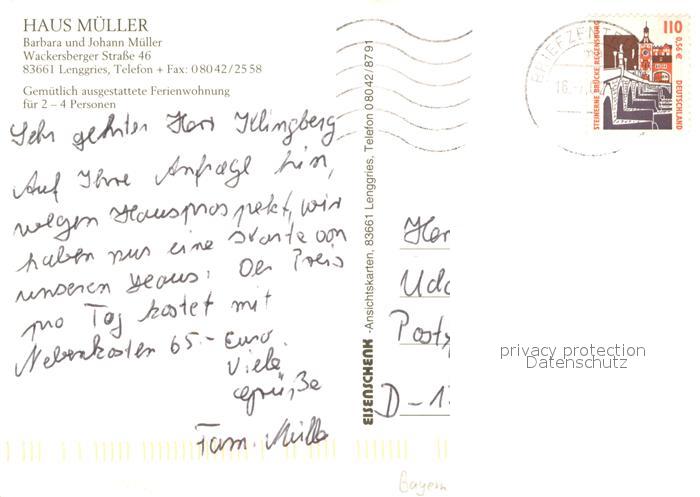 HAUS MÜLLER
Barbara und Johann Müller
Wackersberger Straße 46
83661 Lenggries, Telefon + Fax: 0 80 42 / 25 58
Gemütlich ausgestattete Ferienwohnung
für 2 – 4 Personen
Sehr gehrter Herr Klingberg
Auf Ihre Anfrage hin,
wegen Hausprospekt, wir
haben nur eine Karte von
unseren Haus. Der Preis
pro Tag kostet mit
Nebenkosten 65.- Euro.
Viele
Grüße
Fam. Müller
EISENSCHENK -Ansichtskarten, 83661 Lenggries, Telefon 0 80 42 / 87 91
BRIEFZENTR
16.
110
0,56 €
STEINERNE BRÜCKE REGENSBURG
DEUTSCHLAND
Her
Udo
Post
D-1
privacy protection
Datenschutz
Bayern